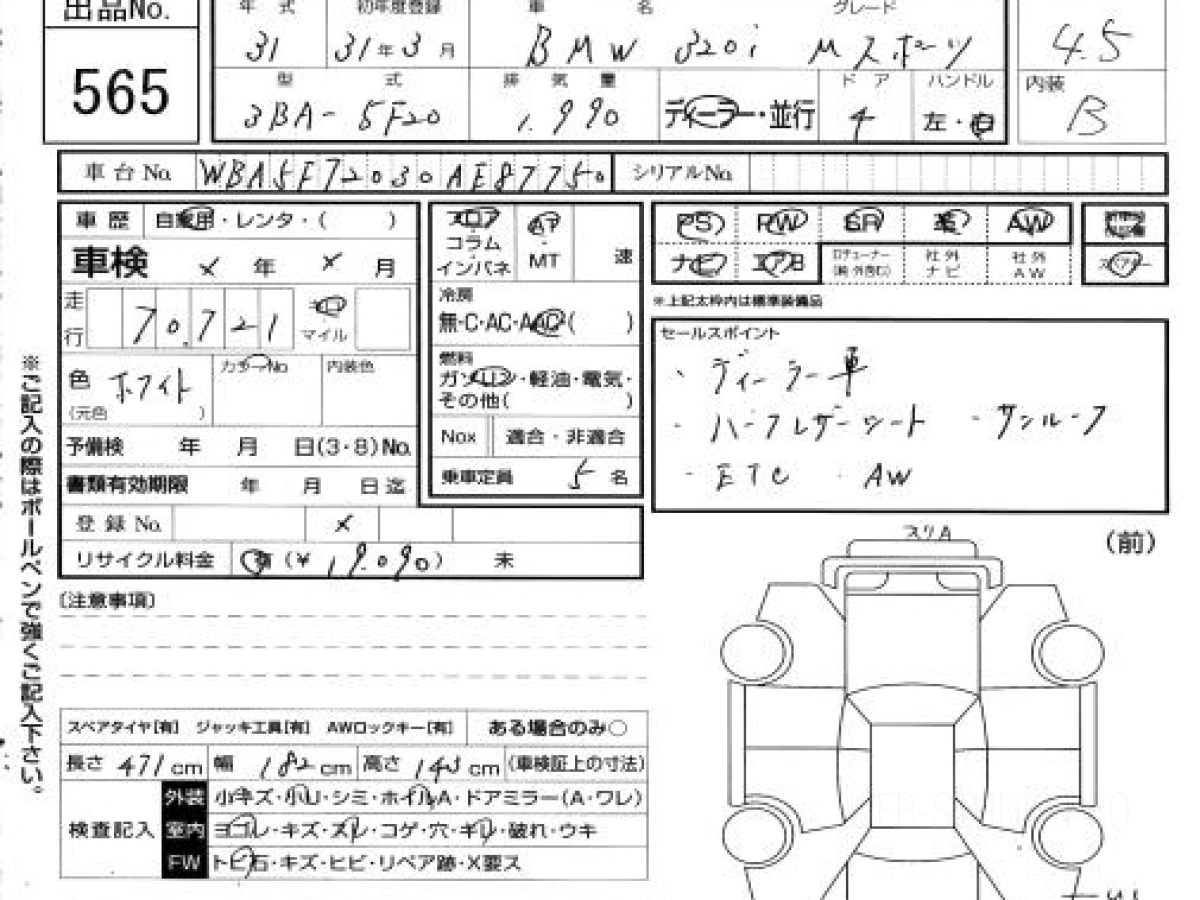 出品No. 年式 初年度登録 車名 グレード
31 31年3月 BMW 320i Mスポーツ 4.5
565 型式 排気量 ドア ハンドル 内装
3BA-5F20 1.990 ディーラー・並行 4 左・右 B
車台No. WBA5F72030AE87750 シリアルNo.
車歴 自家用・レンタ・( )
車検 × 年 × 月
走行 70.721 キロ マイル
色 ホワイト カラーNo. 内装色
(元色 )
予備検 年 月 日(3・8)No.
書類有効期限 年 月 日迄
登録No. ×
リサイクル料金 有(¥19.090) 未
フロア
コラム
インパネ
AT
・
MT
速
冷房
無・C・AC・AAC( )
燃料
ガソリン・軽油・電気・
その他( )
Nox 適合・非適合
乗車定員 5 名
PS PW SR 革 AW
ナビ エアB ロチューナー 社外 社外 エアー
(純・外含む) ナビ AW
※上記太枠内は標準装備品
セールスポイント
・ディーラー車
・ハーフレザーシート ・サンルーフ
・ETC ・AW
※ご記入の際はボールペンで強くご記入下さい。
〔注意事項〕
スペアタイヤ[有] ジャッキ工具[有] AWロックキー[有] ある場合のみ○
長さ 471cm 幅 182cm 高さ 143cm (車検証上の寸法)
検査記入
外装 小キズ・小U・シミ・ホイルA・ドアミラー(A・ワレ)
室内 ヨゴレ・キズ・スレ・コゲ・穴・ギレ・破れ・ウキ
FW トビ石・キズ・ヒビ・リペア跡・X要ス
スリA
(前)